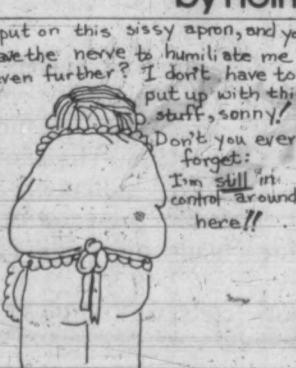 put on this sissy apron, and yo
ave the nerve to humiliate me
ven further? I don't have to
put up with thi
stuff, sonny!
Don't you ever
forget:
I'm still in
control around
here!!